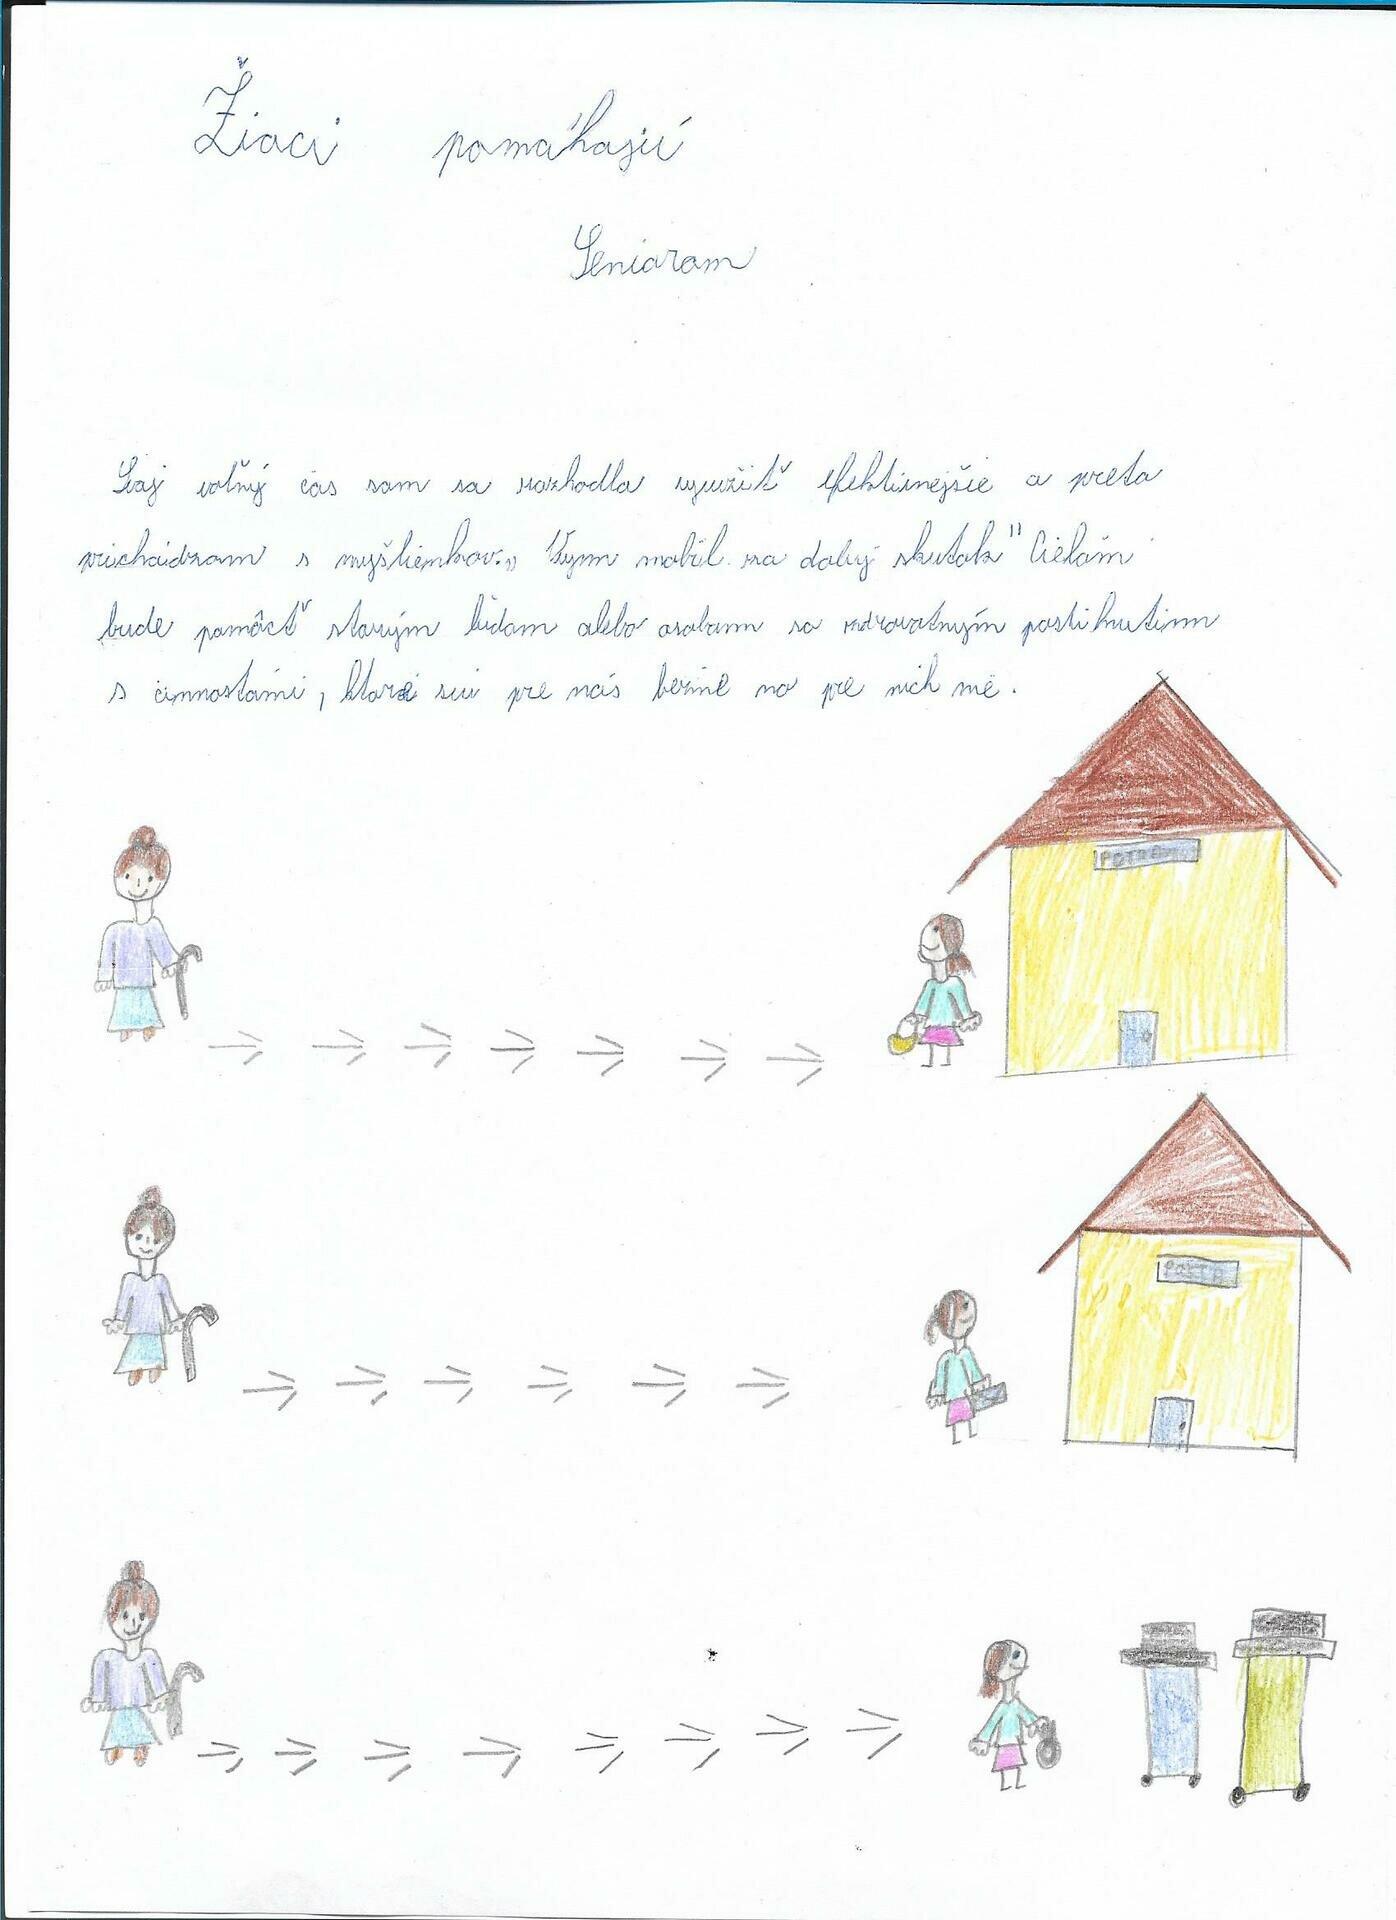 Žiaci pomáhajú
Seniorom
Svoj voľný čas som sa rozhodla využiť efektívnejšie a preto
prichádzam s myšlienkou: „Vym mobil za dobrý skutok" Cieľom
bude pomôcť starým ľudom alebo osobam so zdravotným postihnutim
s činnostami, ktoré sú pre nás bežné no pre nich nie.
POTRAVI
POŠTA